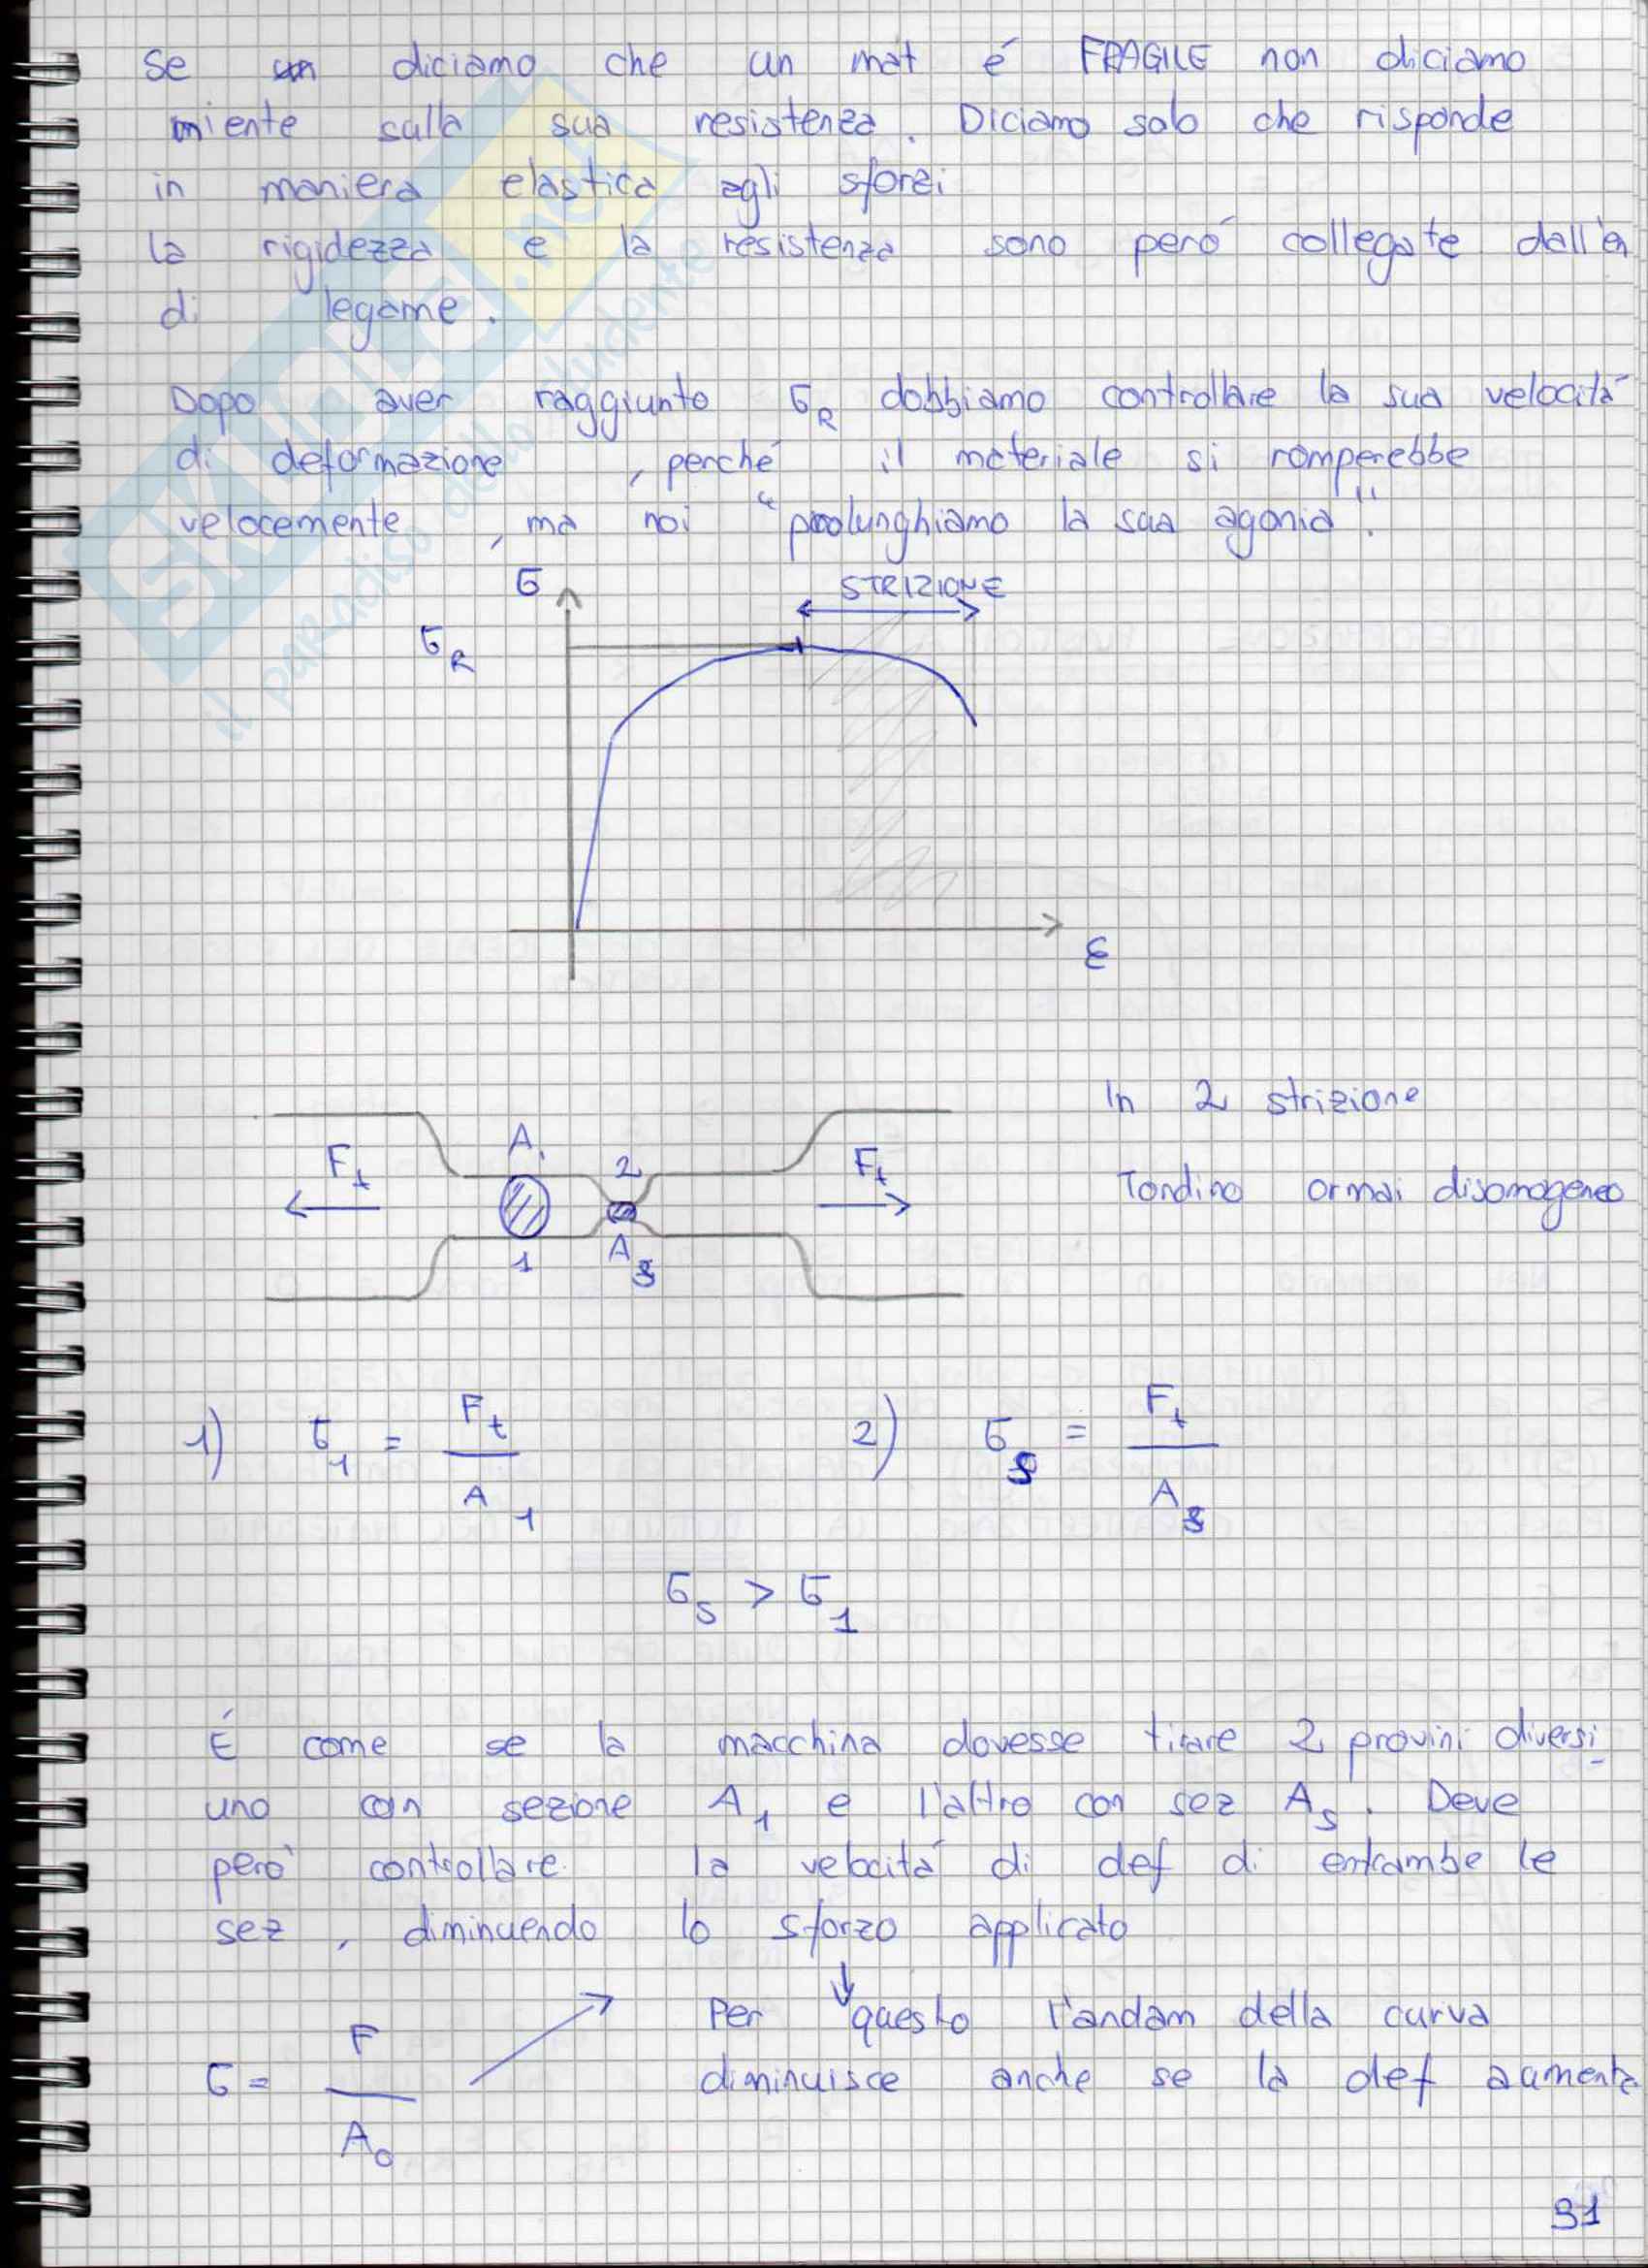 Se diciamo che un mat é FRAGILE non diciamo
niente sulla sua resistenza. Diciamo solo che risponde
in maniera elastica agli sforzi
la rigidezza e la resistenza sono peró collegate dall'en
di legame.
Dopo aver raggiunto σR dobbiamo controllare la sua velocitá
di deformazione, perché il materiale si romperebbe
velocemente, ma noi "prolunghiamo la sua agonia".
σ
STRIZIONE
σR
ε
In 2 strizione
Tondino ormai disomogeneo
Ft
A1
2
Ft
1
As
1) σ1 = Ft / A1
2) σs = Ft / As
σs > σ1
É come se la macchina dovesse tirare 2 provini diversi
uno con sezione A1 e l'altro con sez As. Deve
peró controllare la velocitá di def di entrambe le
sez, diminuendo lo sforzo applicato
Per questo l'andam della curva
diminuisce anche se la def aumenta
σ = F / A0
91
SKUOLA.net
il paradiso dello studente